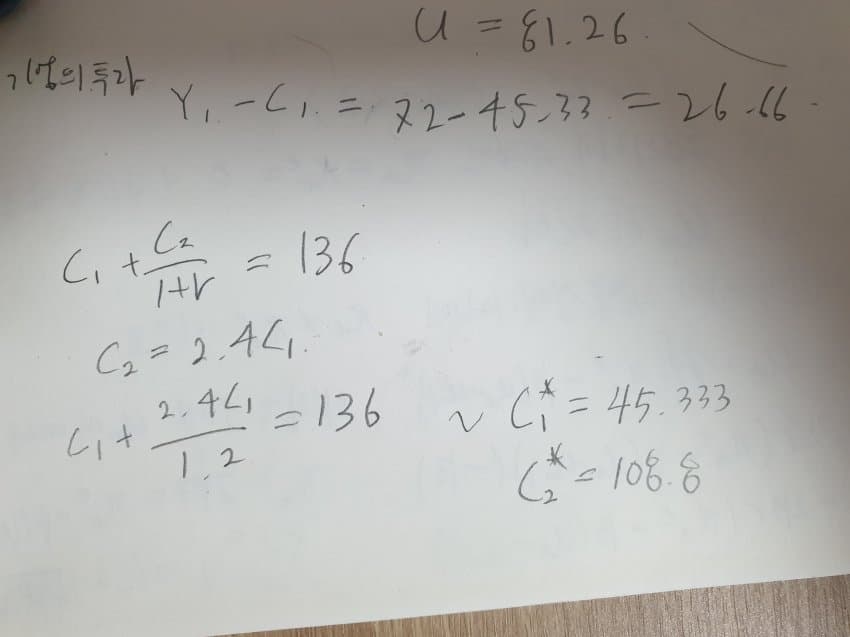 U = 81.26.
기명의 투자
Y₁ - C₁ = 72 - 45.33 = 26.66.
C₁ + C₂/(1+r) = 136
C₂ = 2.4C₁.
C₁ + 2.4C₁/1.2 = 136 ~ C₁* = 45.333
C₂* = 108.8